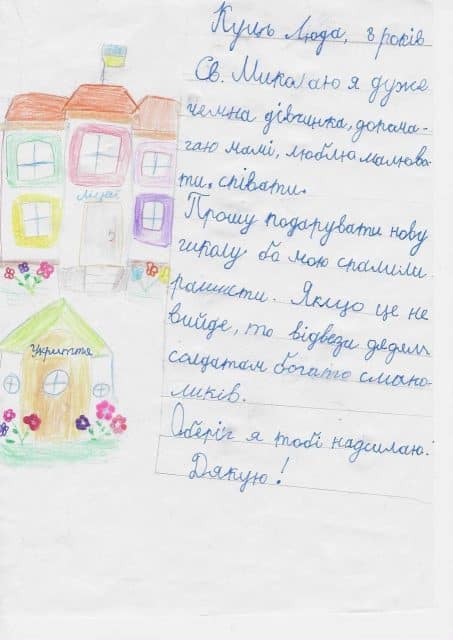 Куць Люда, 8 років
Св. Миколаю я дуже
чемна дівчинка, допома-
гаю мамі, люблю малюва-
ти, співати.
Прошу подарувати нову
школу бо мою спалили
рашисти. Якщо це не
вийде, то відвези дядям
солдатам богато смако-
ликів.
Оберіг я тобі надсилаю.
Дякую!
Ліцей
Укриття